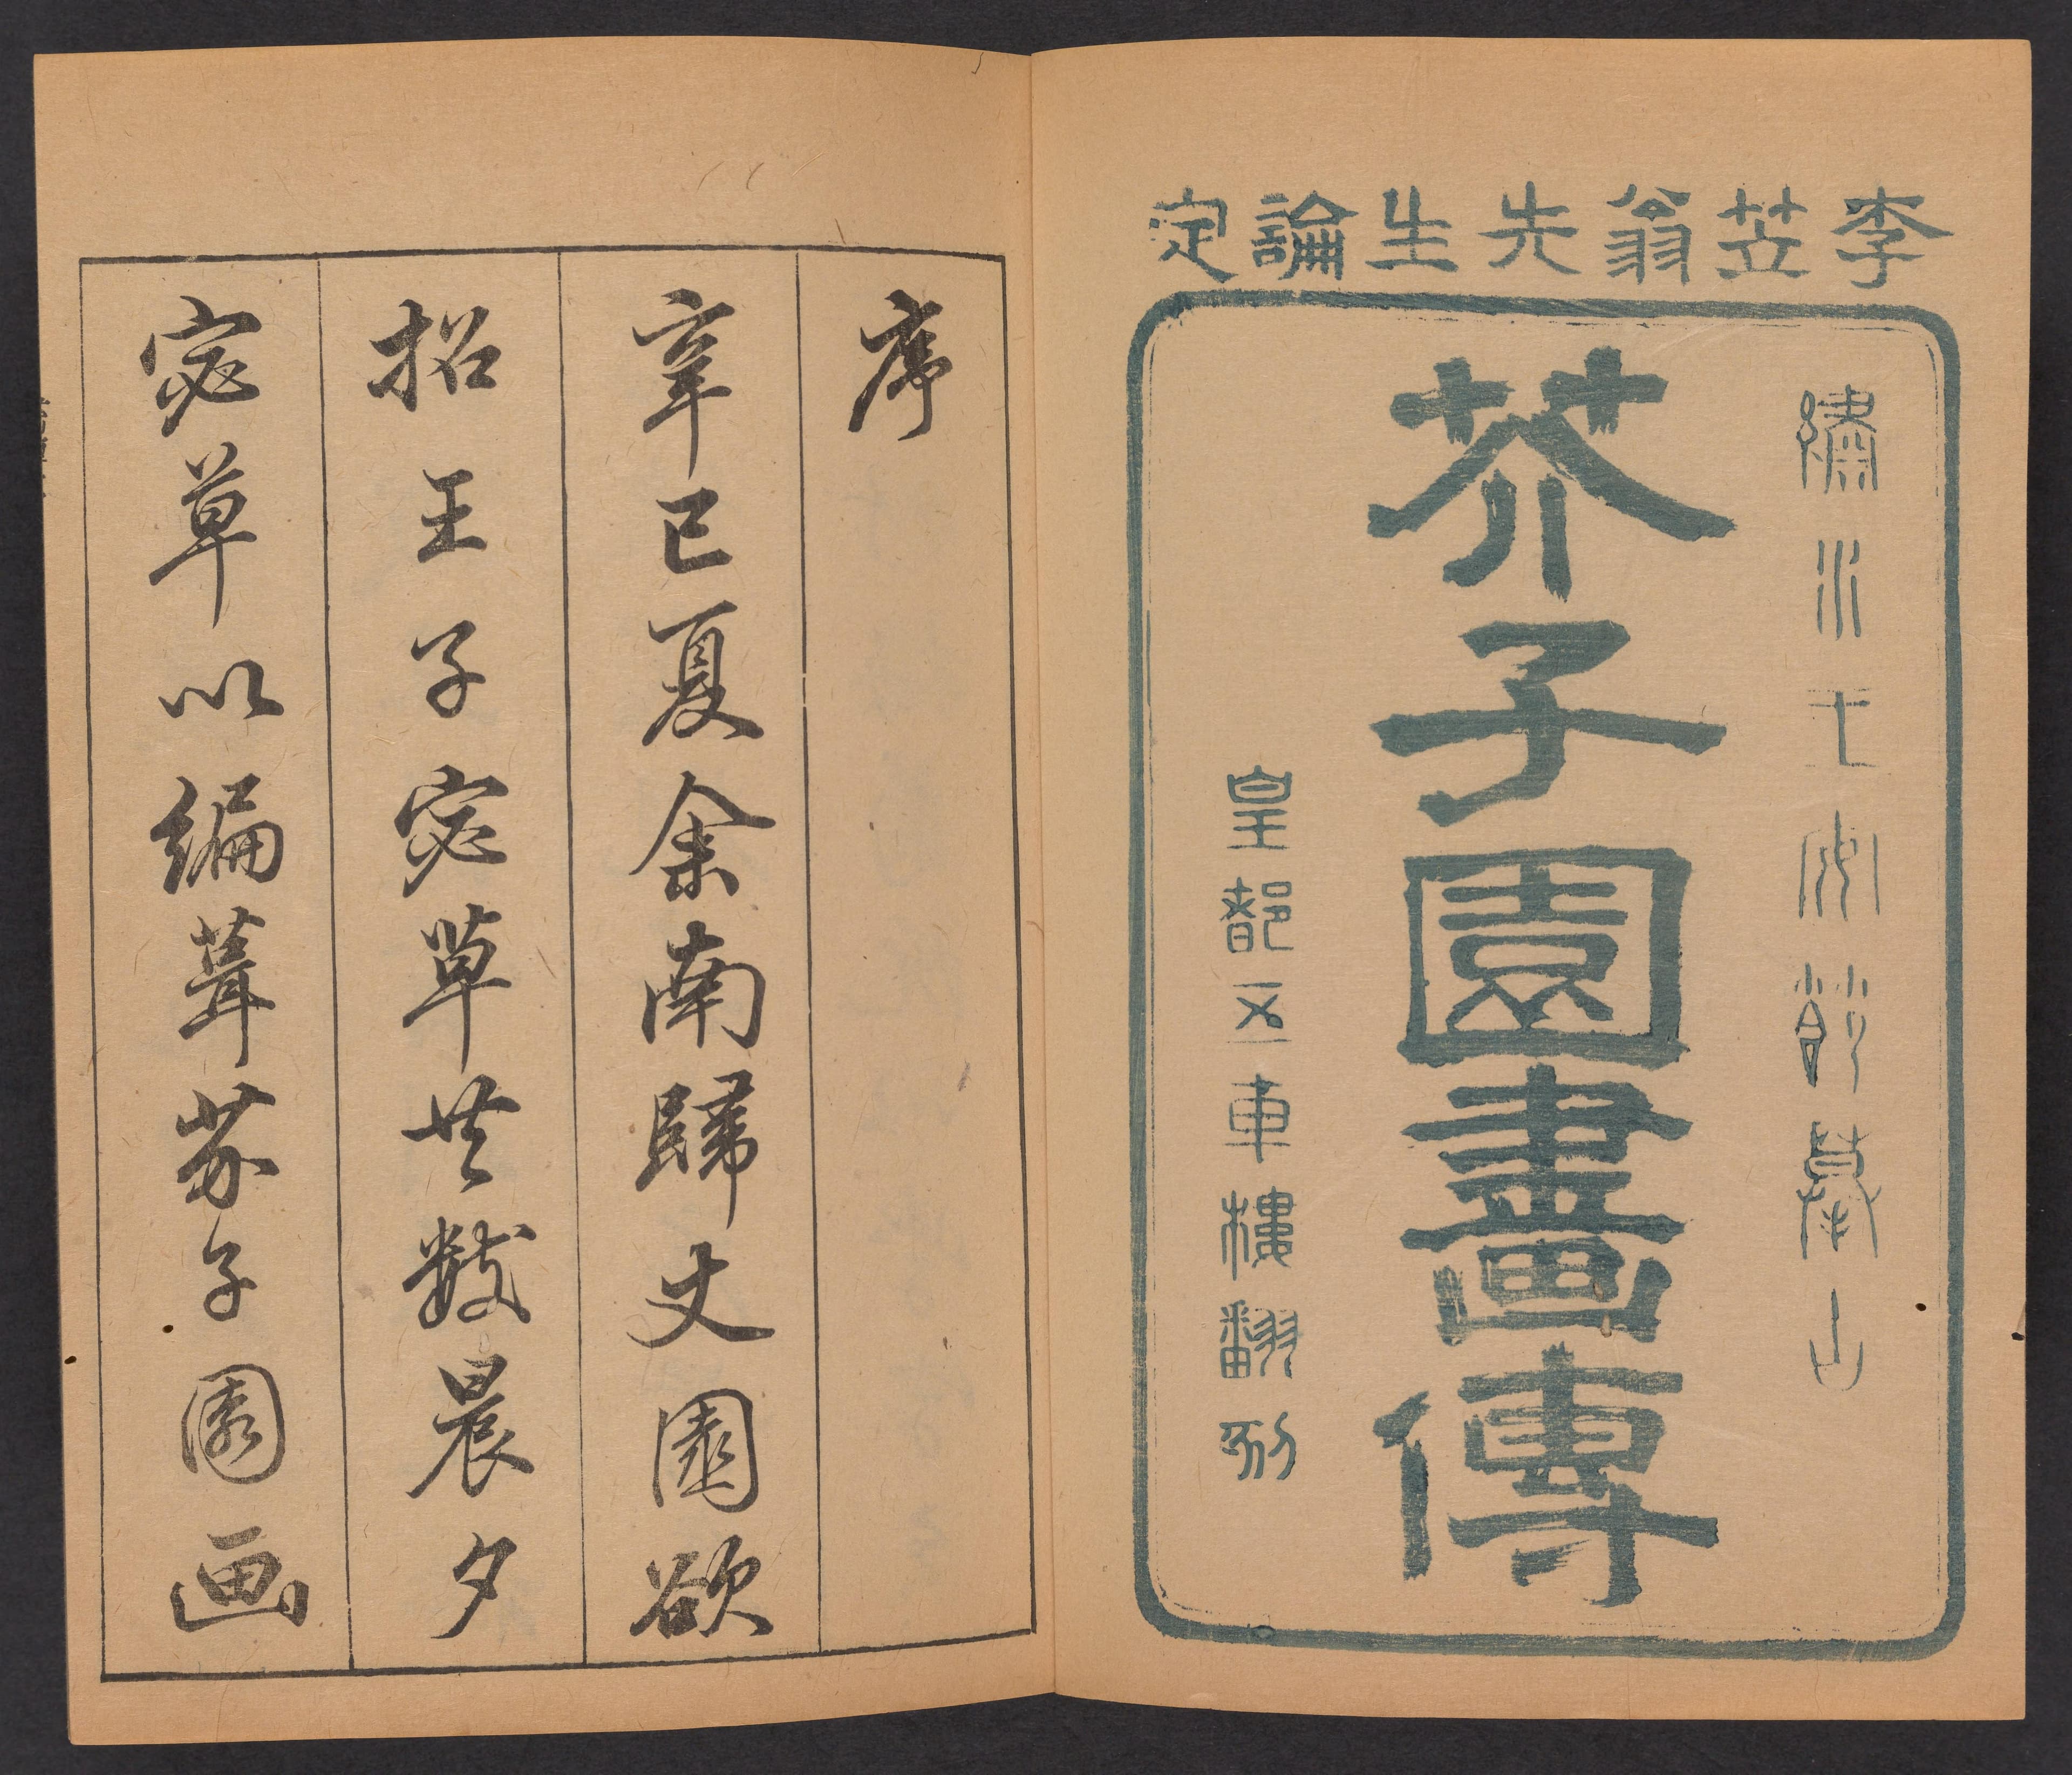 李笠翁先生論定
繡水王安節摹古
芥子園畫傳
皇都五車樓翻刻
序
辛巳夏余南歸丈園欲
招王子宓草共數晨夕
宓草以編葺芥子園画